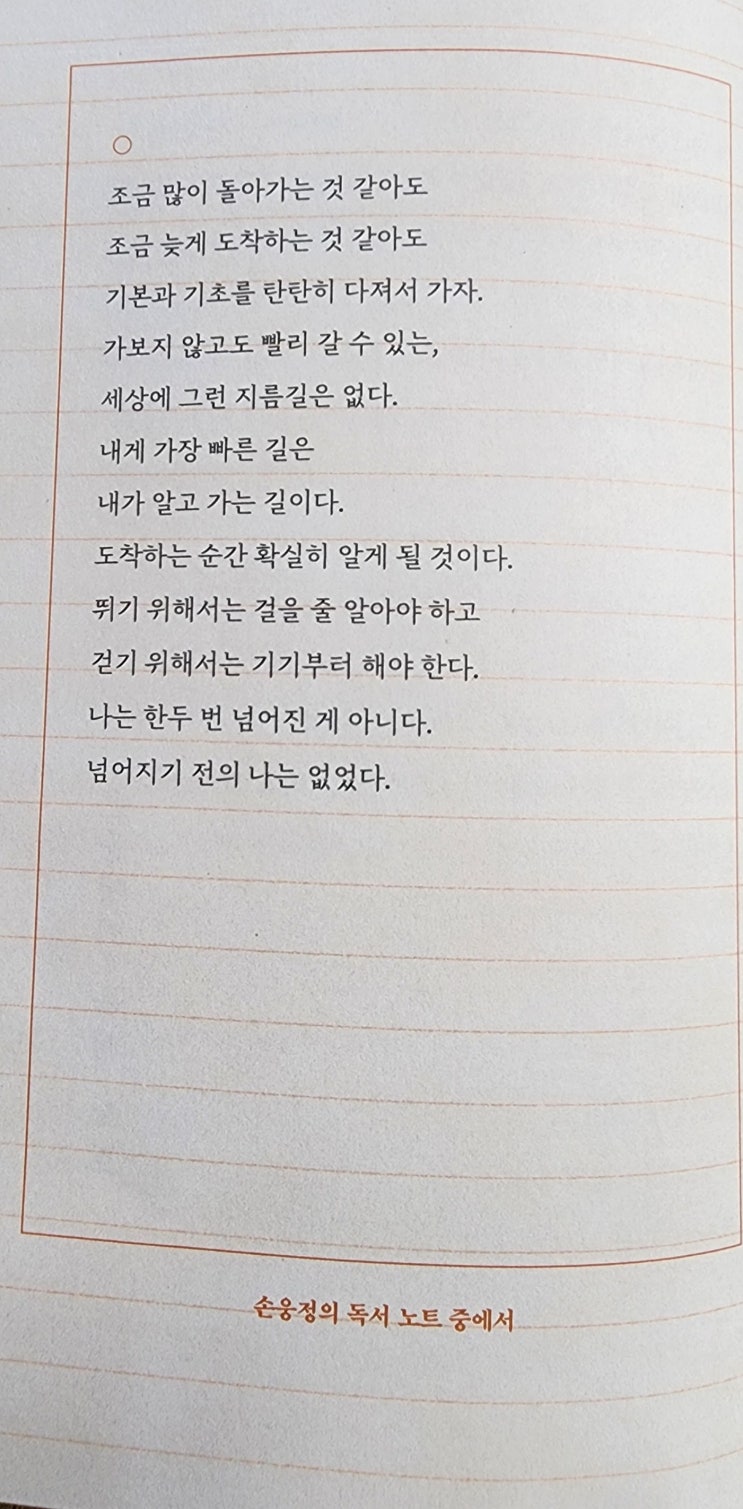 조금 많이 돌아가는 것 같아도
조금 늦게 도착하는 것 같아도
기본과 기초를 탄탄히 다져서 가자.
가보지 않고도 빨리 갈 수 있는,
세상에 그런 지름길은 없다.
내게 가장 빠른 길은
내가 알고 가는 길이다.
도착하는 순간 확실히 알게 될 것이다.
뛰기 위해서는 걸을 줄 알아야 하고
걷기 위해서는 기기부터 해야 한다.
나는 한두 번 넘어진 게 아니다.
넘어지기 전의 나는 없었다.
손웅정의 독서 노트 중에서